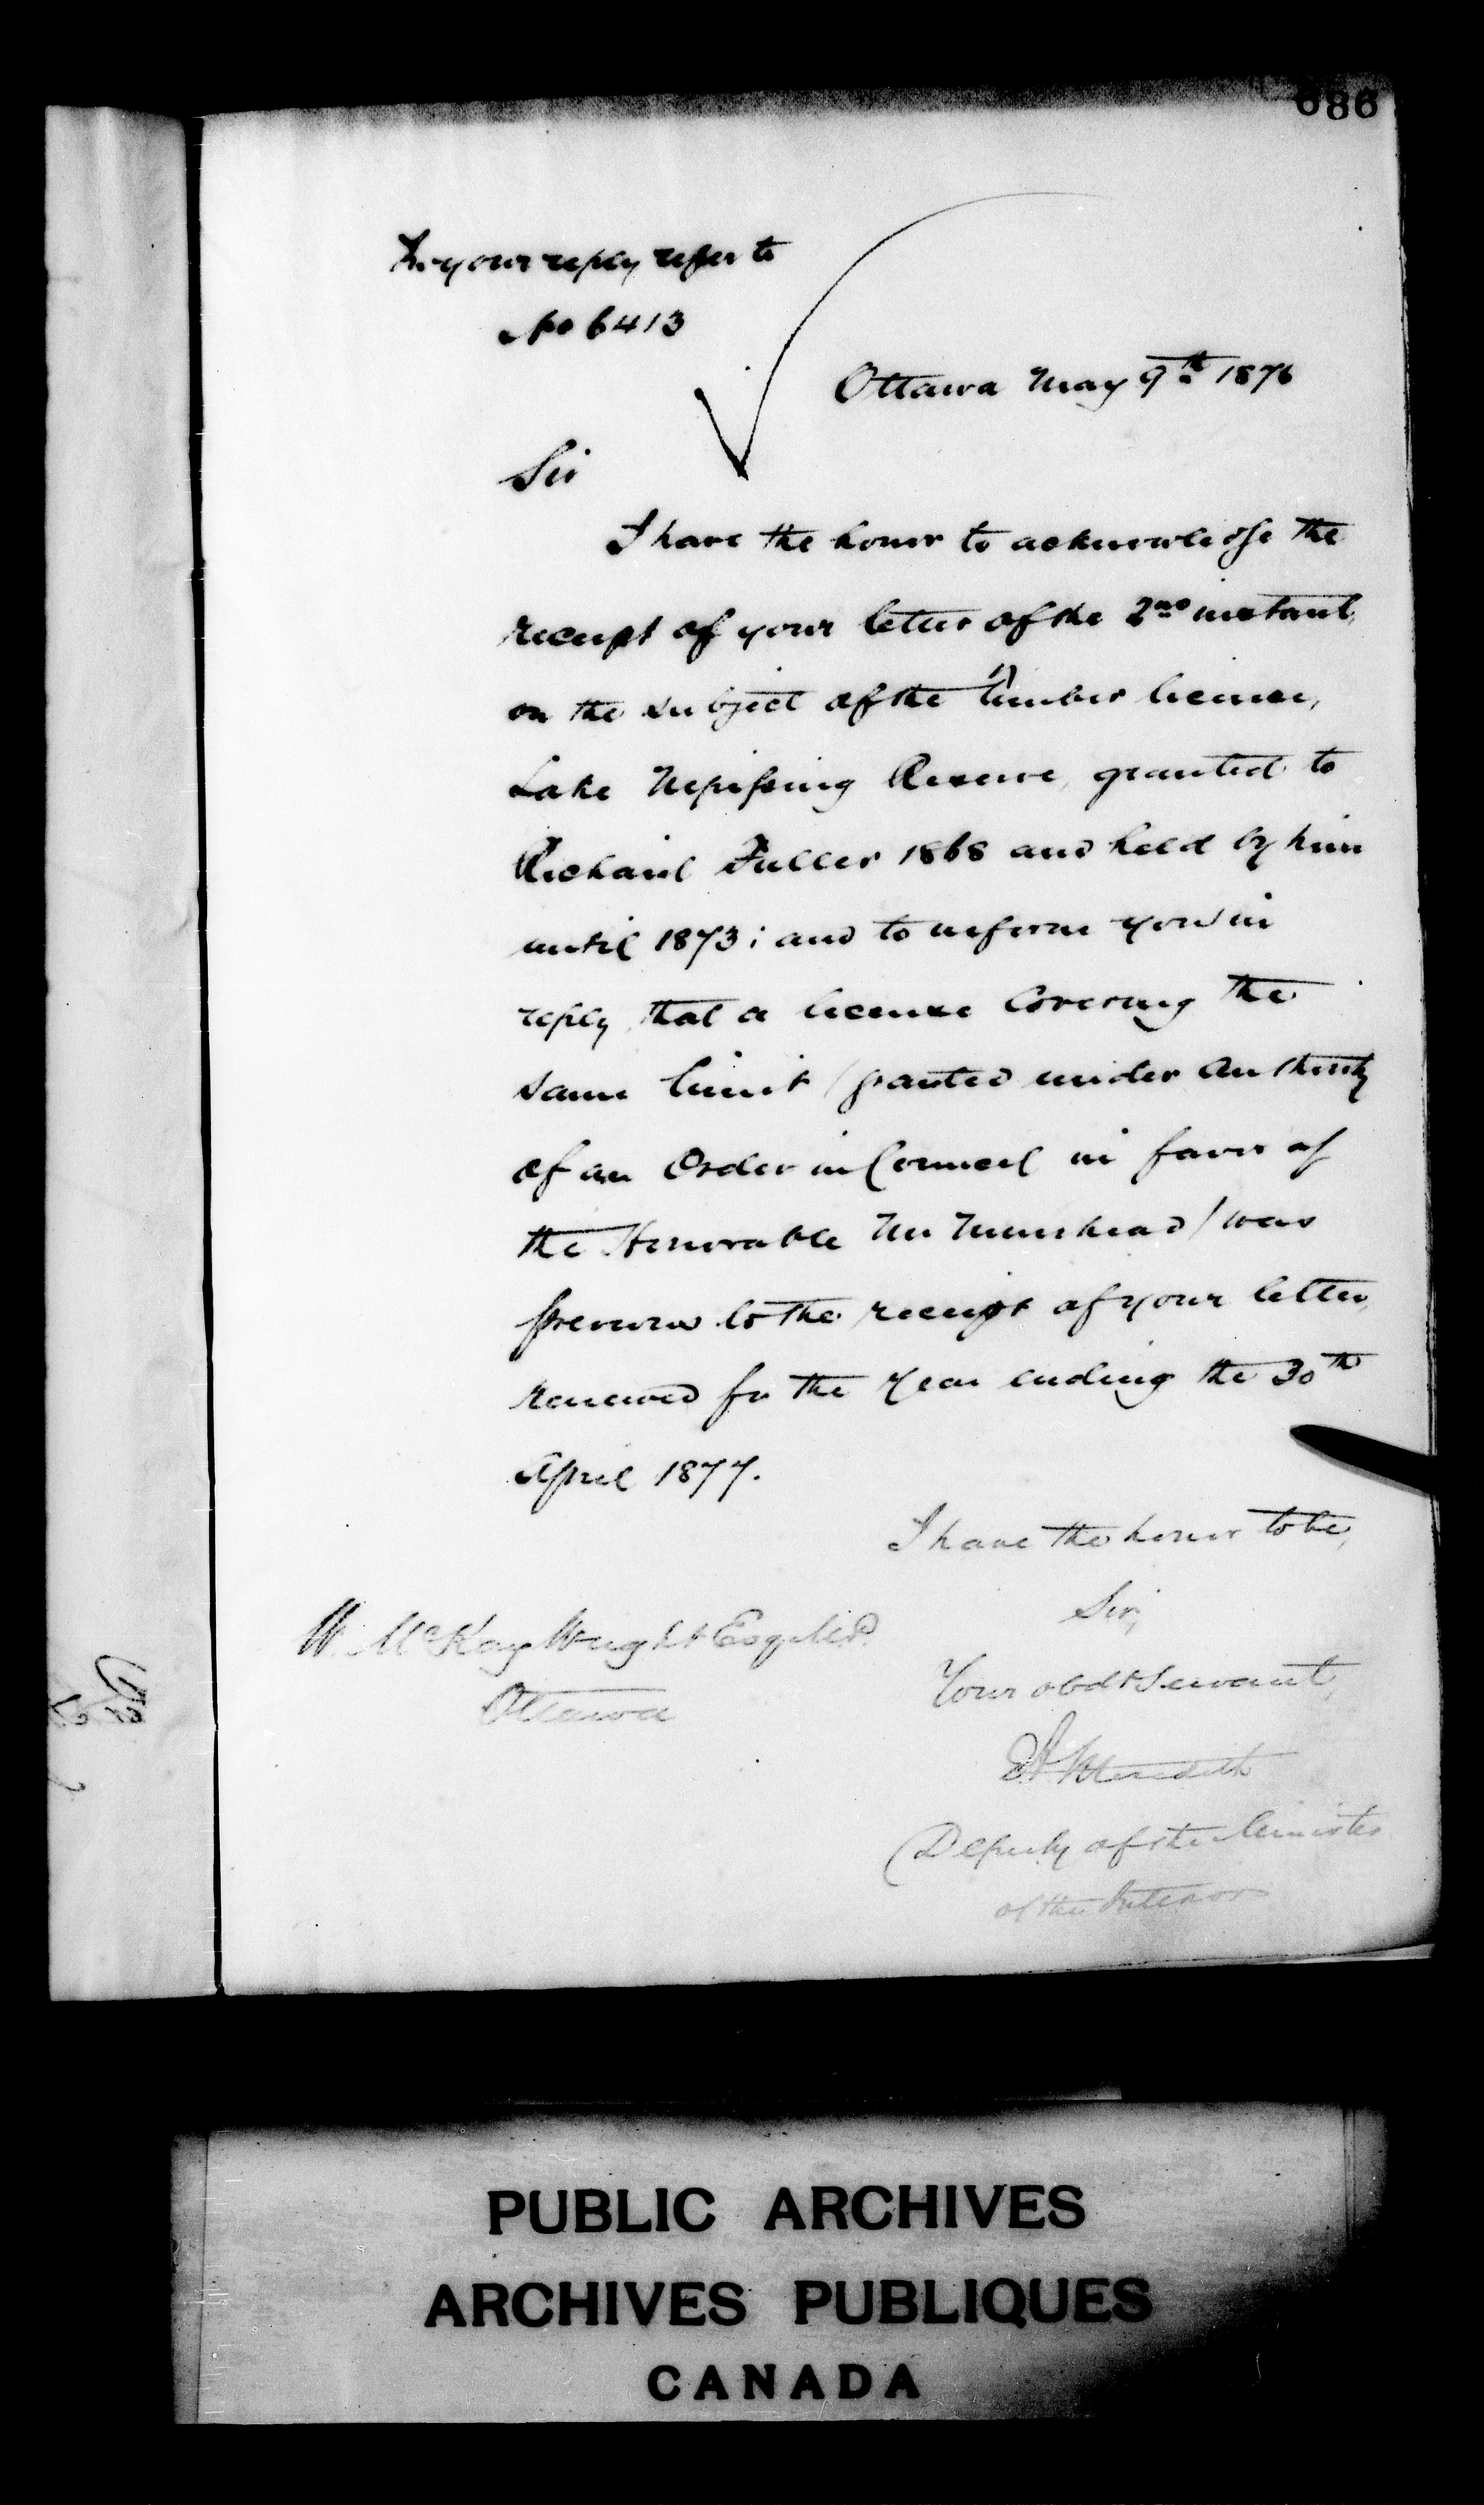 686
In your reply refer to
No 6413
Ottawa May 9th 1876
Sir
I have the honor to acknowledge the
receipt of your letter of the 2nd instant,
on the subject of the timber license,
Lake Nipissing Reserve, granted to
Richard Fuller 1868 and held by him
until 1873; and to inform you in
reply, that a license covering the
same limit (granted under authority
of an Order in Council in favor of
the Honorable Mr Muirhead) was
previous to the receipt of your letter,
renewed for the year ending the 30th
April 1877.
I have the honor to be,
Sir,
Your obdt Servant,
W. McKay Wright Esq. M.P.
Ottawa
E A Meredith
Deputy of the Minister
of the Interior
PUBLIC ARCHIVES
ARCHIVES PUBLIQUES
CANADA